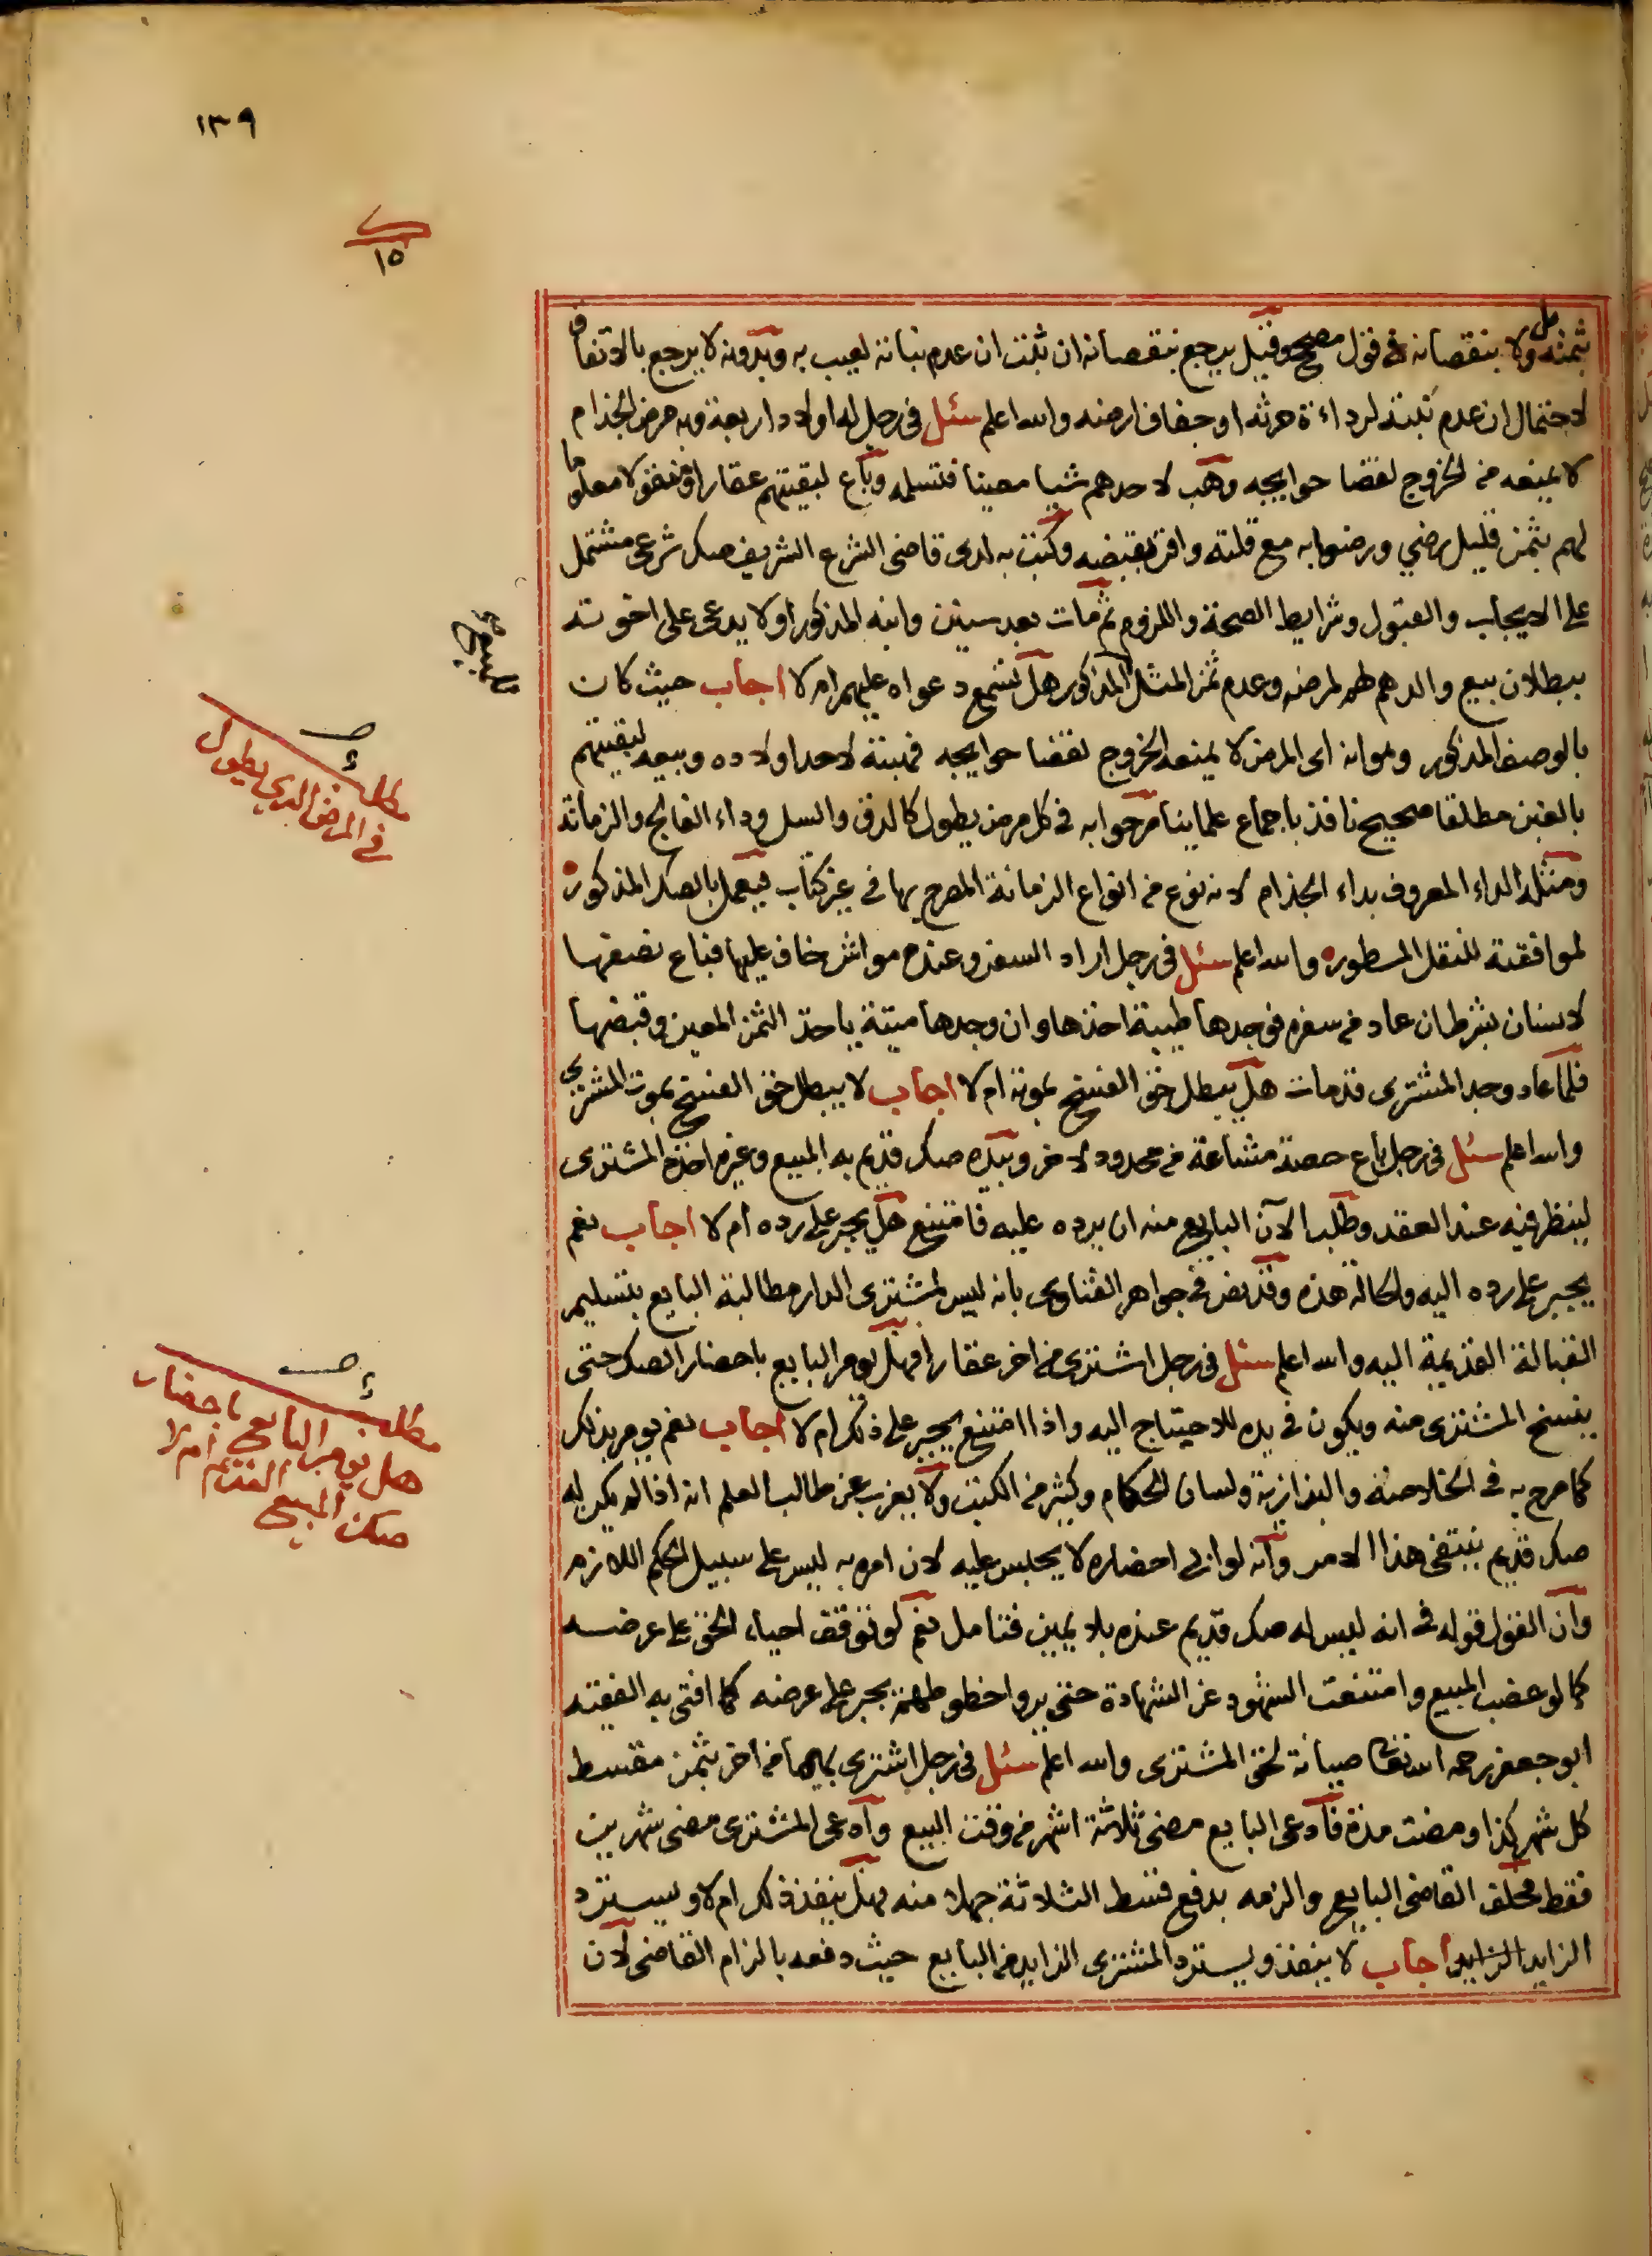 ١٣٩
١٥
بثمنه ولا بنقصانه في قول مصحح وقيل يرجع بنقصانه ان ثبت ان عدم نباته لعيب به وبدونه لا يرجع بالاتفاق
لاحتمال ان عدم نبته لرداءة حرثه او جفاف ارضه والله اعلم سئل في رجل له اولاد اربعة وبه مرض الجذام
لا يمنعه من الخروج لقضا حوايجه وهب لاحدهم شيا معينا فتسلمه وباع لبقيتهم عقارا ومنقولا معلوما
لهم بثمن قليل رضي ورضوا به مع قلته واقر بقبضه وكتب به لدى قاضي الشرع الشريف صك شرعي مشتمل
على الايجاب والقبول وشرايط الصحة واللزوم ثم مات بعد سنين وابنه المذكور اولا يدعى على اخوته
ببطلان بيع والدهم لهم لمرضه وعدم ثمن المثل المذكور هل تسمع دعواه عليهم ام لا اجاب حيث كان
بالوصف المذكور وهو انه اى المرض لا يمنعه الخروج لقضا حوايجه فهبته لاحد اولاده وبيعه لبقيتهم
بالغبن مطلقا صحيح نافذ باجماع علماينا صرحوا به في كل مرض يطول كالدق والسل وداء الفالج والزمانة
ومثله الداء المعروف بداء الجذام لانه نوع من انواع الزمانة المصرح بها في غير كتاب فيعمل بالصك المذكور
لموافقته للنقل المسطور والله اعلم سئل في رجل اراد السفر وعنده مواش خاف عليها فباع نصفها
لانسان بشرط ان عاد من سفره فوجدها طيبة اخذها وان وجدها ميتة ياخذ الثمن المعين وقبضها
فلما عاد وجد المشترى قد مات هل يبطل حق الفسخ بموته ام لا اجاب لا يبطل حق الفسخ بموت المشترى
والله اعلم سئل في رجل باع حصة مشاعة من محدود لاخر وبيده صك قديم به المبيع وغيره اخذه المشترى
لينظر فيه عند العقد وطلب الآن البايع منه ان يرده عليه فامتنع هل يجبر على رده ام لا اجاب نعم
يجبر على رده اليه والحالة هذه وقد نص في جواهر الفتاوى بانه ليس لمشترى الدار مطالبة البايع بتسليم
القبالة القديمة اليه والله اعلم سئل في رجل اشترى من اخر عقارا فهل يومر البايع باحضار الصك حتى
ينسخ المشترى منه ويكون في يده للاحتياج اليه واذا امتنع يجبر على ذلك ام لا اجاب نعم يومر بذلك
كما صرح به في الخلاصة والبزازية ولسان الحكام وكثير من الكتب ولا يعزب عن طالب العلم انه اذا لم يكن له
صك قديم ينتفي هذا الامر وانه لو ابى احضاره لا يحبس عليه لان امره به ليس على سبيل الحكم اللازم
وان القول قوله في انه ليس له صك قديم عنده بلا يمين فتامل نعم لو توقف احياء الحق على عرضه
كما لو غصب المبيع وامتنعت الشهود عن الشهادة حتى يروا خطوطهم يجبر على عرضه كما افتى به الفقيه
ابو جعفر رحمه الله تعالى صيانة لحق المشترى والله اعلم سئل في رجل اشترى بهيما من اخر بثمن مقسط
كل شهر كذا ومضت مدة فادعى البايع مضى ثلاثة اشهر من وقت البيع وادعى المشترى مضى شهرين
فقط فحلف القاضى البايع والزمه بدفع قسط الثلاثة جهلا منه فهل ينفذ ذلك ام لا ويسترد
الزايد الزايد اجاب لا ينفذ ويسترد المشترى الزايد من البايع حيث دفعه بالزام القاضى لان
مطلب
في المرض الذي يطول
مطلب
هل يومر البايع باحضار
صك المبيع القديم ام لا